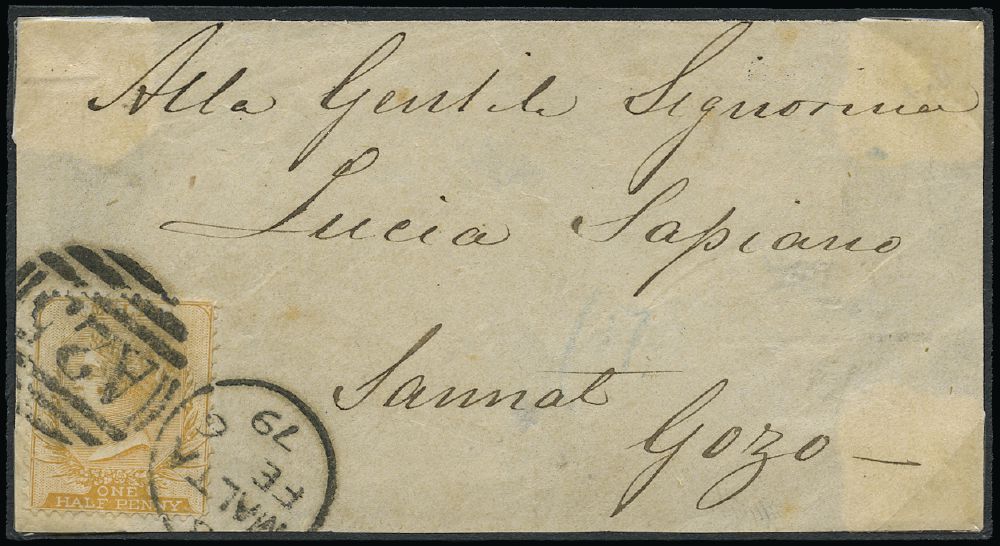 Alla Gentile Signorina
Lucia Sapiano
Sannat
Gozo
A25
MALTA
G
FE
79
ONE
HALF PENNY